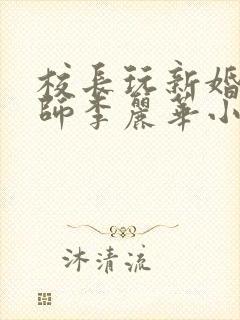 校長玩新婚
師李麗華小
沐清流